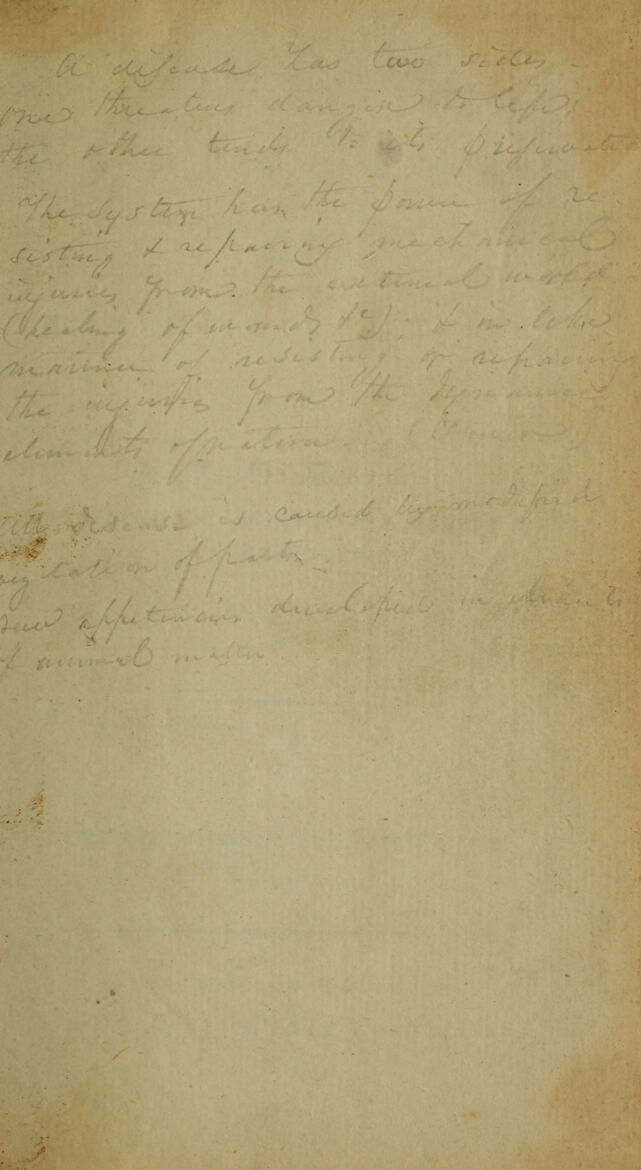 A disease has two sides -
one threatens danger to life;
the other tends to its preservation
The system has the power of re-
sisting & repairing mechanical
injuries from the external world
(healing of wounds &c), & in like
manner of resisting or repairing
the injuries from the
elements of nature
All disease is caused by modified
vegetation of parts -
new appetencies developed in elements
of animal matter